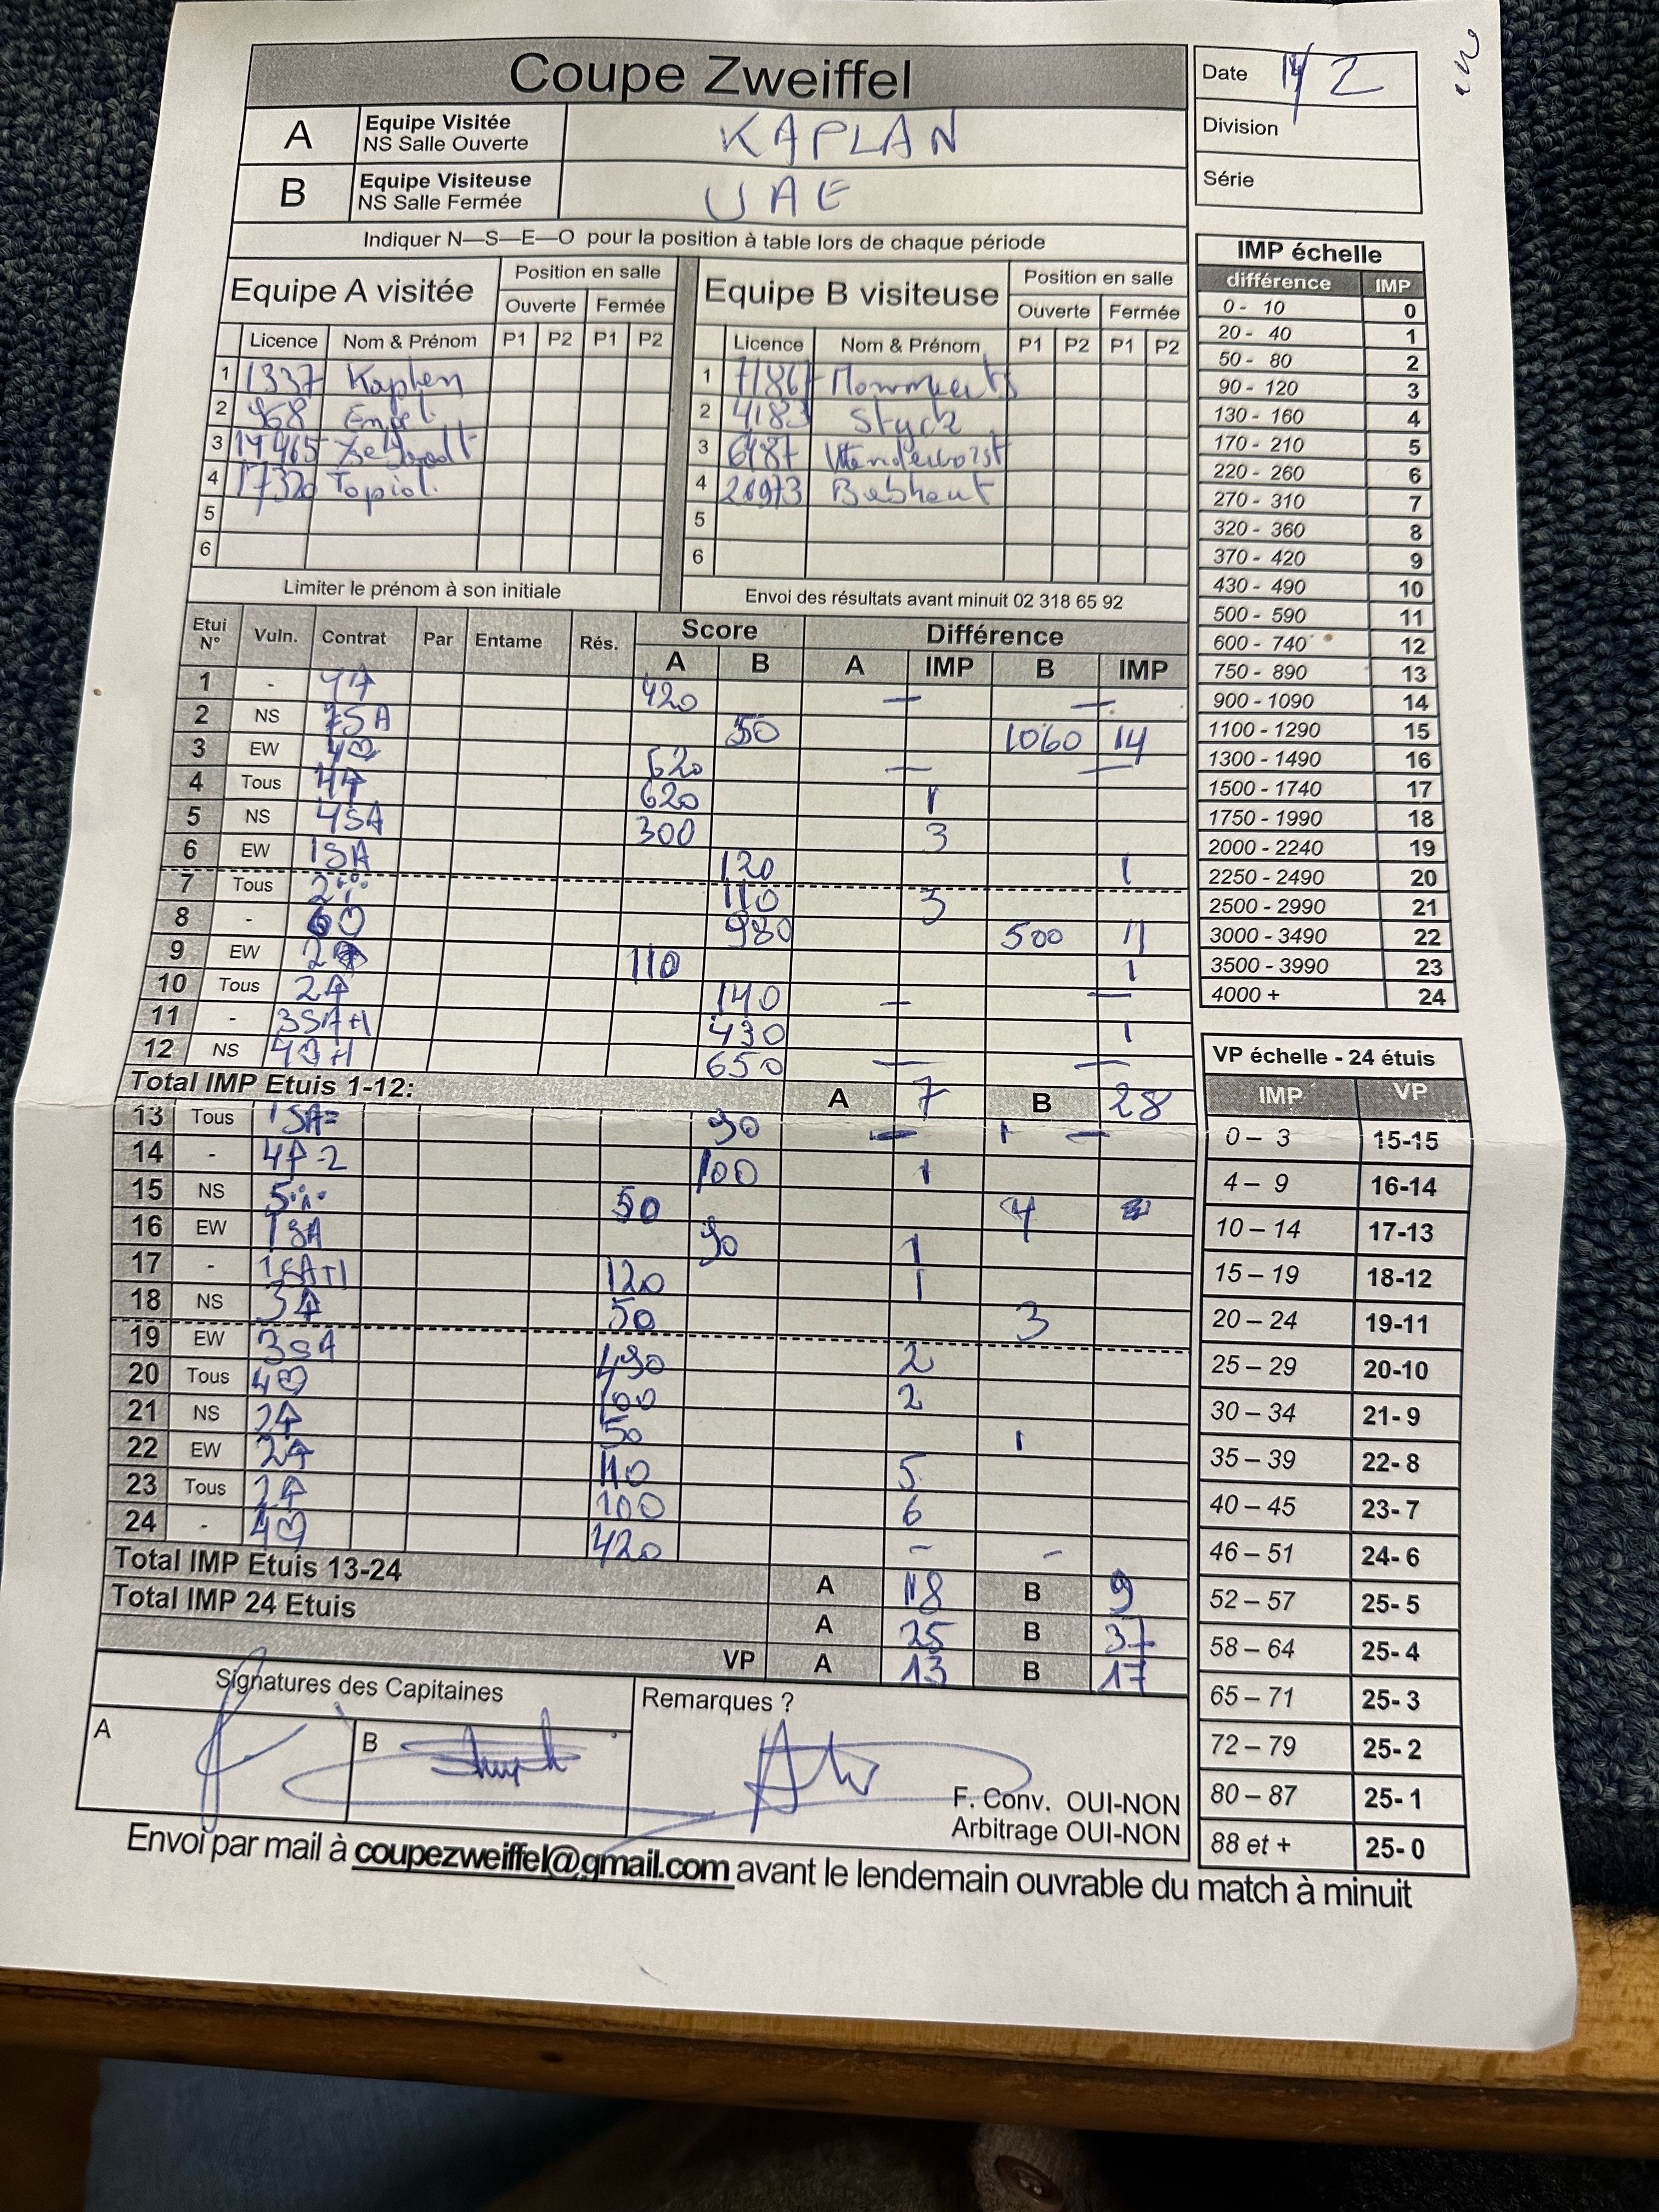 Coupe Zweiffel
Date 14/2
A Equipe Visitée NS Salle Ouverte KAPLAN
Division
B Equipe Visiteuse NS Salle Fermée UAE
Série
Indiquer N—S—E—O pour la position à table lors de chaque période
Equipe A visitée Position en salle Equipe B visiteuse Position en salle
Ouverte Fermée Ouverte Fermée
Licence Nom & Prénom P1 P2 P1 P2 Licence Nom & Prénom P1 P2 P1 P2
1 1337 Kaplan 1 71867
2 968 Engel 2 4183 Styck
3 17465 3 6187
4 17320 Topiol. 4 26973
5 5
6 6
Limiter le prénom à son initiale Envoi des résultats avant minuit 02 318 65 92
IMP échelle
différence IMP
0 - 10 0
20 - 40 1
50 - 80 2
90 - 120 3
130 - 160 4
170 - 210 5
220 - 260 6
270 - 310 7
320 - 360 8
370 - 420 9
430 - 490 10
500 - 590 11
600 - 740 12
750 - 890 13
900 - 1090 14
1100 - 1290 15
1300 - 1490 16
1500 - 1740 17
1750 - 1990 18
2000 - 2240 19
2250 - 2490 20
2500 - 2990 21
3000 - 3490 22
3500 - 3990 23
4000 + 24
Etui N° Vuln. Contrat Par Entame Rés. Score Différence
A B A IMP B IMP
1 - 4♠ 420 — —
2 NS 7SA 50 1060 14
3 EW 4♡ 620 — —
4 Tous 4♠ 620 1
5 NS 4SA 300 3
6 EW 1SA 120 1
7 Tous 2♣ 110 3
8 - 6♡ 980 500 11
9 EW 2♠ 110 1
10 Tous 2♠ 140 — —
11 - 3SA+1 430 1
12 NS 4♡+1 650 — —
Total IMP Etuis 1-12: A 7 B 28
13 Tous 1SA= 90 — —
14 - 4♠-2 100 1
15 NS 5♣ 50 4
16 EW 1SA 90 1
17 - 1SA+1 120 1
18 NS 3♠ 50 3
19 EW 3SA 490 2
20 Tous 4♡ 100 2
21 NS 2♠ 50 1
22 EW 2♠ 110 5
23 Tous 2♠ 100 6
24 - 4♡ 420 - -
Total IMP Etuis 13-24 A 18 B 9
Total IMP 24 Etuis A 25 B 37
VP A 13 B 17
VP échelle - 24 étuis
IMP VP
0 – 3 15-15
4 – 9 16-14
10 – 14 17-13
15 – 19 18-12
20 – 24 19-11
25 – 29 20-10
30 – 34 21- 9
35 – 39 22- 8
40 – 45 23- 7
46 – 51 24- 6
52 – 57 25- 5
58 – 64 25- 4
65 – 71 25- 3
72 – 79 25- 2
80 – 87 25- 1
88 et + 25- 0
Signatures des Capitaines Remarques ?
A B
F. Conv. OUI-NON
Arbitrage OUI-NON
Envoi par mail à coupezweiffel@gmail.com avant le lendemain ouvrable du match à minuit